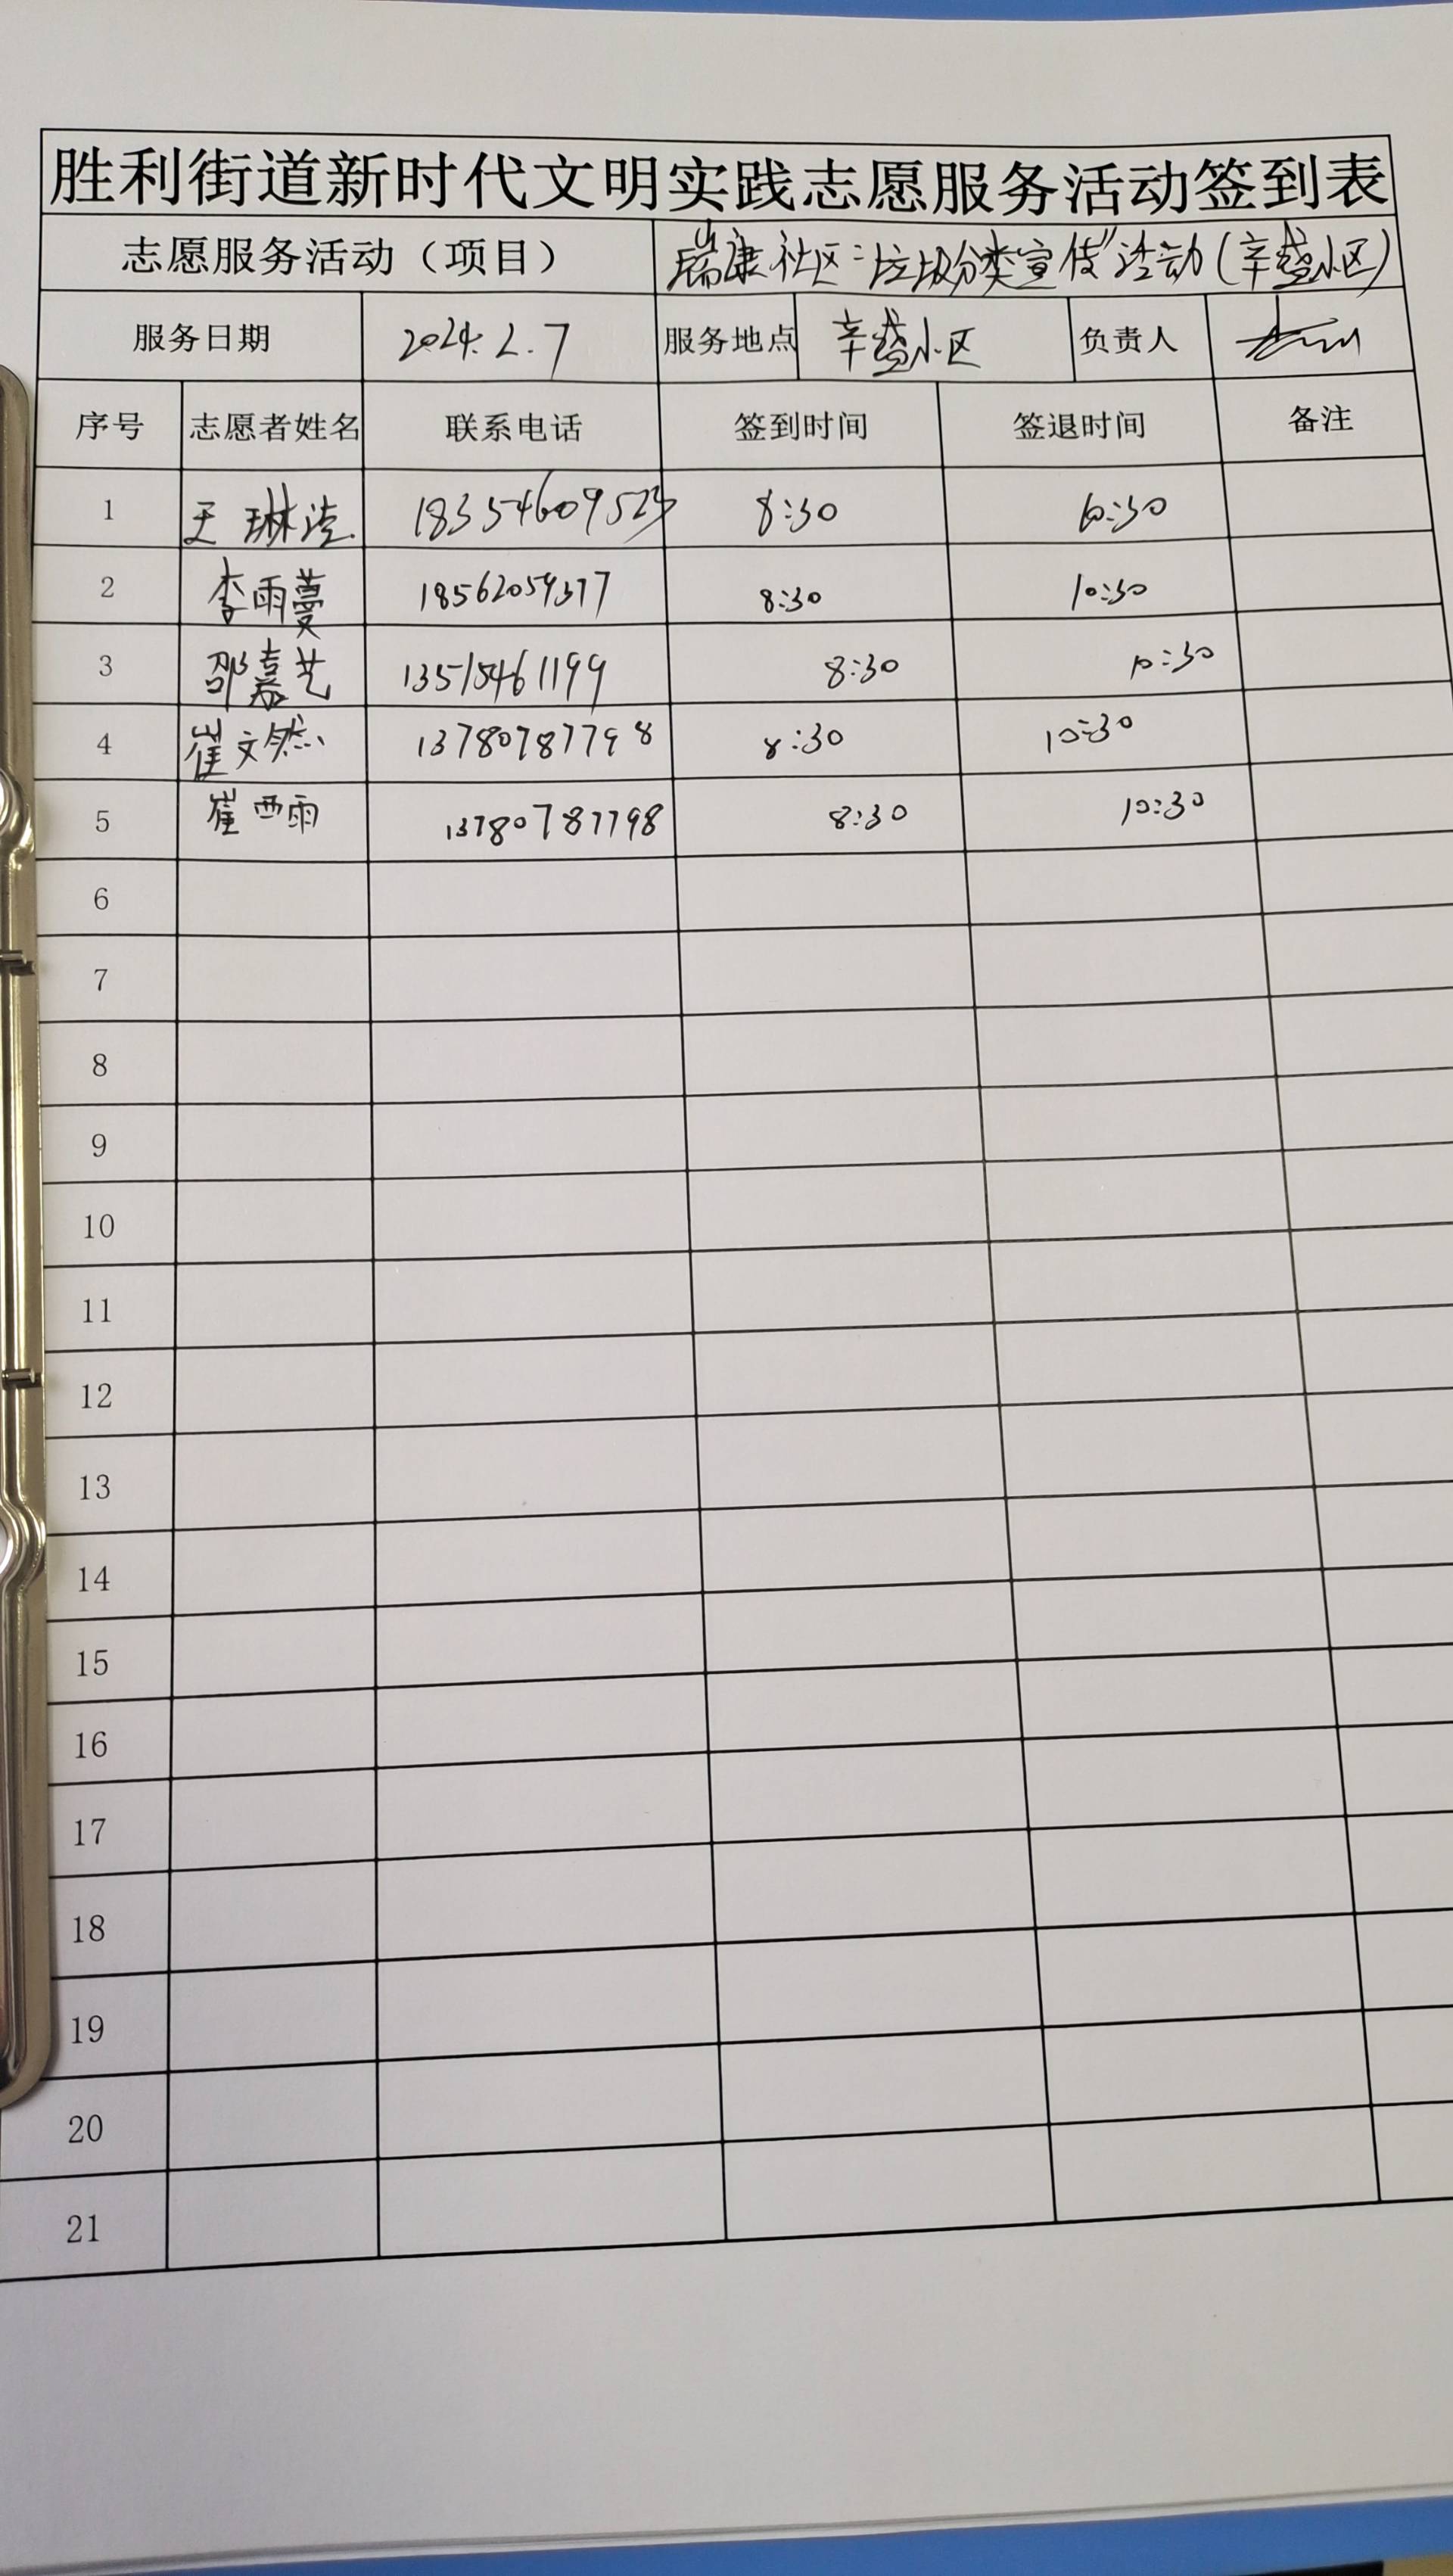 胜利街道新时代文明实践志愿服务活动签到表
志愿服务活动（项目） 瑞康社区"垃圾分类宣传"活动(辛盛小区)
服务日期 2024.2.7 服务地点 辛盛小区 负责人
序号 志愿者姓名 联系电话 签到时间 签退时间 备注
1 王琳浩 8:30 10:30
2 李雨蔓 18562059377 8:30 10:30
3 邵嘉艺 13515461199 8:30 10:30
4 崔文然 13780787798 8:30 10:30
5 崔西雨 13780787798 8:30 10:30
6
7
8
9
10
11
12
13
14
15
16
17
18
19
20
21